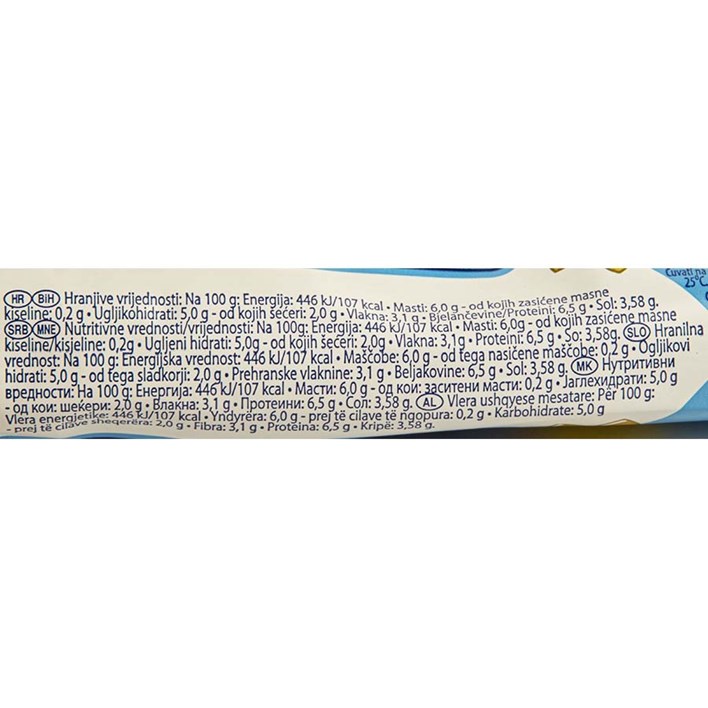 Čuvati na
25°C
HR BiH Hranjive vrijednosti: Na 100 g: Energija: 446 kJ/107 kcal • Masti: 6,0 g - od kojih zasićene masne
kiseline: 0,2 g • Ugljikohidrati: 5,0 g - od kojih šećeri: 2,0 g • Vlakna: 3,1 g • Bjelančevine/Proteini: 6,5 g • Sol: 3,58 g.
SRB MNE Nutritivne vrednosti/vrijednosti: Na 100g: Energija: 446 kJ/107 kcal • Masti: 6,0g - od kojih zasićene masne
kiseline/kisjeline: 0,2g • Ugljeni hidrati: 5,0g - od kojih šećeri: 2,0g • Vlakna: 3,1g • Proteini: 6,5 g • So: 3,58g. SLO Hranilna
vrednost: Na 100 g: Energijska vrednost: 446 kJ/107 kcal • Maščobe: 6,0 g - od tega nasičene maščobe: 0,2 g • Ogljikovi
hidrati: 5,0 g - od tega sladkorji: 2,0 g • Prehranske vlaknine: 3,1 g • Beljakovine: 6,5 g • Sol: 3,58 g. MK Нутритивни
вредности: На 100 g: Енергија: 446 kJ/107 kcal • Масти: 6,0 g - од кои: заситени масти: 0,2 g • Јаглехидрати: 5,0 g
- од кои: шеќери: 2,0 g • Влакна: 3,1 g • Протеини: 6,5 g • Сол: 3,58 g. AL Vlera ushqyese mesatare: Për 100 g:
Vlera energjetike: 446 kJ/107 kcal • Yndyrëra: 6,0 g - prej të cilave të ngopura: 0,2 g • Karbohidrate: 5,0 g
- prej të cilave sheqerëra: 2,0 g • Fibra: 3,1 g • Proteina: 6,5 g • Kripë: 3,58 g.